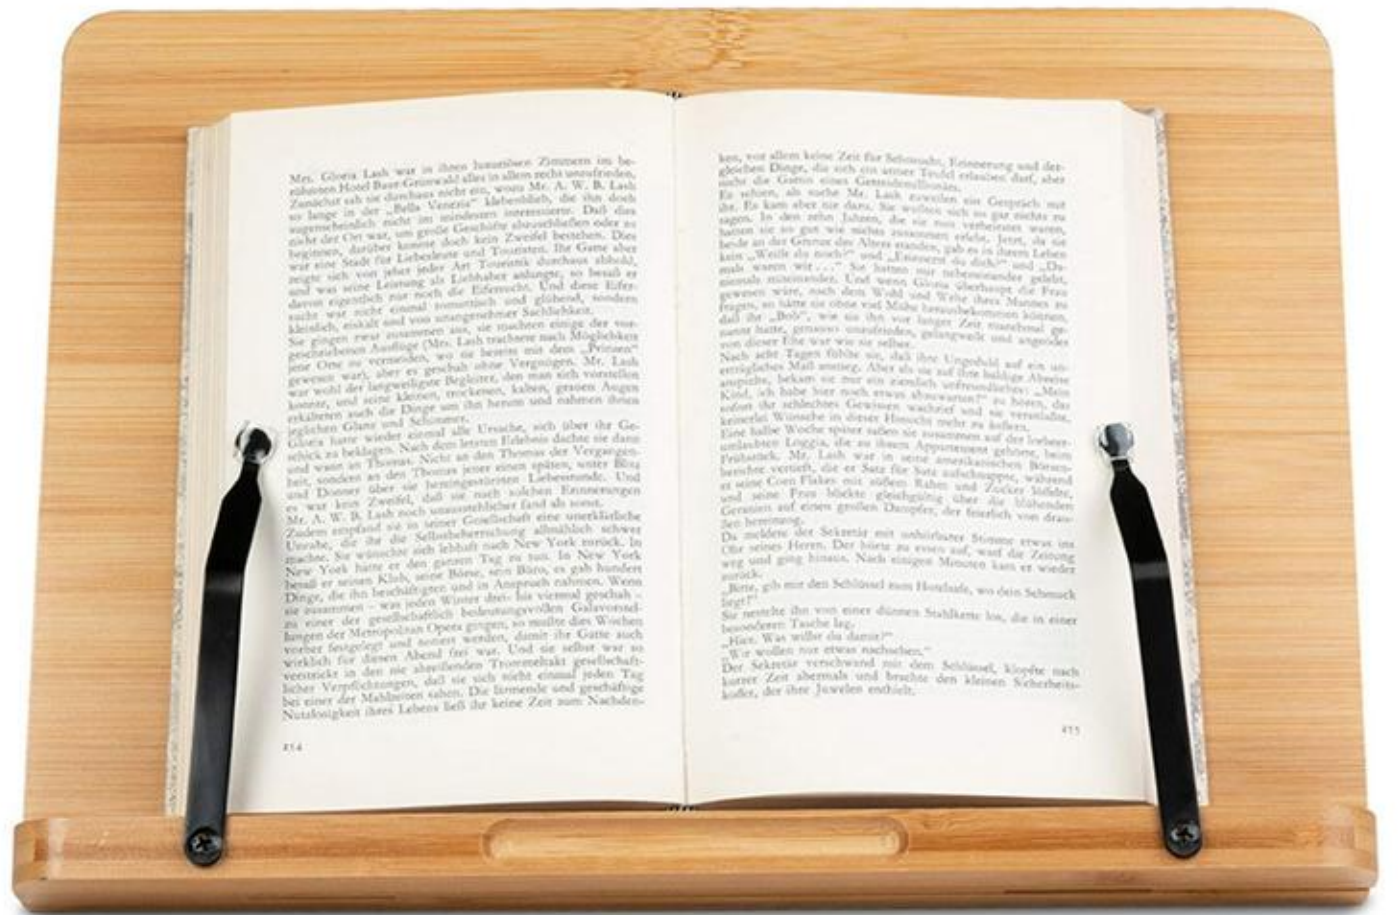 Mrs. Gloria Lash war in ihren luxuriösen Zimmern im be-
rühmten Hotel Baur-Grünwald alles in allem recht unzufrieden.
Zunächst sah sie durchaus nicht ein, wozu Mr. A. W. B. Lash
so lange in der „Bella Venezia“ klebenblieb, die ihn doch
augenscheinlich nicht im mindesten interessierte. Daß dies
nicht der Ort war, um große Geschäfte abzuschließen oder zu
beginnen, darüber konnte doch kein Zweifel bestehen. Dies
war eine Stadt für Liebesleute und Touristen. Ihr Gatte aber
zeigte sich von jeher jeder Art Touristik durchaus abhold,
und was seine Leistung als Liebhaber anlangte, so besaß er
davon eigentlich nur noch die Eifersucht. Und diese Eifer-
sucht war nicht einmal romantisch und glühend, sondern
kleinlich, eiskalt und von unangenehmer Sachlichkeit.
Sie gingen zwar zusammen aus, sie machten einige der vor-
geschriebenen Ausflüge (Mrs. Lash trachtete nach Möglichkeit
jene Orte zu vermeiden, wo sie bereits mit dem „Prinzen“
gewesen war), aber es geschah ohne Vergnügen. Mr. Lash
war wohl der langweiligste Begleiter, den man sich vorstellen
konnte, und seine kleinen, trockenen, kalten, grauen Augen
erkälteten auch die Dinge um ihn herum und nahmen ihnen
jeglichen Glanz und Schimmer.
Gloria hatte wieder einmal alle Ursache, sich über ihr Ge-
schick zu beklagen. Nach dem letzten Erlebnis dachte sie dann
und wann an Thomas. Nicht an den Thomas der Vergangen-
heit, sondern an den Thomas jener einen späten, unter Blitz
und Donner über sie hereingestürzten Liebesstunde. Und
es war kein Zweifel, daß sie nach solchen Erinnerungen
Mr. A. W. B. Lash noch unausstehlicher fand als sonst.
Zudem empfand sie in seiner Gesellschaft eine unerklärliche
Unruhe, die ihr die Selbstbeherrschung allmählich schwer
machte. Sie wünschte sich lebhaft nach New York zurück. In
New York hatte er den ganzen Tag zu tun. In New York
besaß er seinen Klub, seine Börse, sein Büro, es gab hundert
Dinge, die ihn beschäftigten und in Anspruch nahmen. Wenn
sie zusammen – was jeden Winter drei- bis viermal geschah –
zu einer der gesellschaftlich bedeutungsvollen Galavorstel-
lungen der Metropolitan Opera gingen, so mußte dies Wochen
vorher festgelegt und notiert werden, damit ihr Gatte auch
wirklich für diesen Abend frei war. Und sie selbst war so
verstrickt in den nie abreißenden Trommeltakt gesellschaft-
licher Verpflichtungen, daß sie sich nicht einmal jeden Tag
bei einer der Mahlzeiten sahen. Die lärmende und geschäftige
Nutzlosigkeit ihres Lebens ließ ihr keine Zeit zum Nachden-
254
ken, vor allem keine Zeit für Sehnsucht, Erinnerung und der-
gleichen Dinge, die sich ein armer Teufel erlauben darf, aber
nicht die Gattin eines Getreidemillionärs.
Es schien, als suche Mr. Lash zuweilen ein Gespräch mit
ihr. Es kam aber nie dazu. Sie wußten sich so gar nichts zu
sagen. In den zehn Jahren, die sie nun verheiratet waren,
hatten sie so gut wie nichts zusammen erlebt. Jetzt, da sie
beide an der Grenze des Alters standen, gab es in ihrem Leben
kein „Weißt du noch?“ und „Erinnerst du dich?“ und „Da-
mals waren wir . . .“ Sie hatten nur nebeneinander gelebt,
niemals miteinander. Und wenn Gloria überhaupt die Frau
gewesen wäre, nach dem Wohl und Wehe ihres Mannes zu
fragen, so hätte sie ohne viel Mühe herausbekommen können,
daß ihr „Bob“, wie sie ihn vor langer Zeit manchmal ge-
nannt hatte, genauso unzufrieden, gelangweilt und angeödet
von dieser Ehe war wie sie selber.
Nach acht Tagen fühlte sie, daß ihre Ungeduld auf ein un-
erträgliches Maß anstieg. Aber als sie auf ihre baldige Abreise
anspielte, bekam sie nur ein ziemlich unfreundliches: „Mein
Kind, ich habe hier noch etwas abzuwarten!“ zu hören, das
sofort ihr schlechtes Gewissen wachrief und sie veranlaßte,
keinerlei Wünsche in dieser Hinsicht mehr zu äußern.
Eine halbe Woche später saßen sie zusammen auf der lorbeer-
umlaubten Loggia, die zu ihrem Appartement gehörte, beim
Frühstück. Mr. Lash war in seine amerikanischen Börsen-
berichte vertieft, die er Satz für Satz aufschnappte, während
er seine Corn Flakes mit süßem Rahm und Zucker löffelte,
und seine Frau blickte gleichgültig über die blühenden
Geranien auf einen großen Dampfer, der feierlich von drau-
ßen hereinzog.
Da meldete der Sekretär mit unhörbarer Stimme etwas ins
Ohr seines Herrn. Der hörte zu essen auf, warf die Zeitung
weg und ging hinaus. Nach einigen Minuten kam er wieder
zurück.
„Bitte, gib mir den Schlüssel zum Hotelsafe, wo dein Schmuck
liegt!“
Sie nestelte ihn von einer dünnen Stahlkette los, die in einer
besonderen Tasche lag.
„Hier. Was willst du damit?“
„Wir wollen nur etwas nachsehen.“
Der Sekretär verschwand mit dem Schlüssel, klopfte nach
kurzer Zeit abermals und brachte den kleinen Sicherheits-
koffer, der ihre Juwelen enthielt.
255